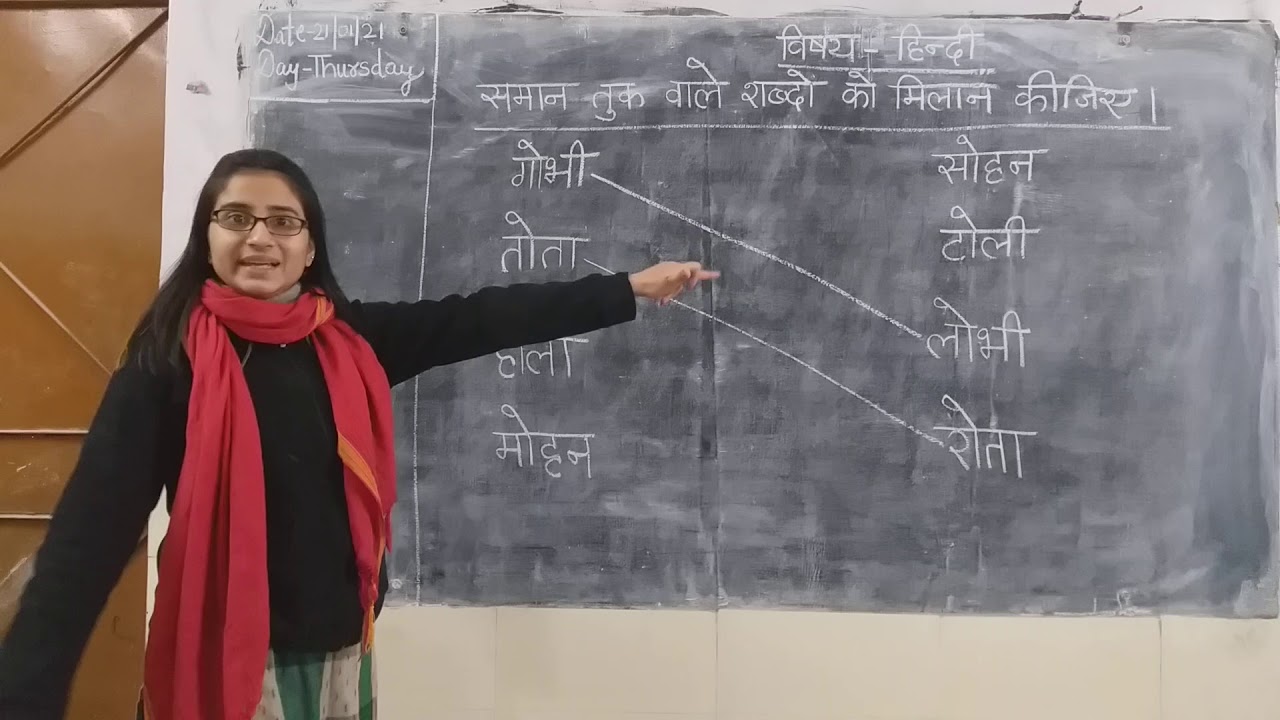 Date-21/01/21
Day-Thursday
विषय - हिन्दी
समान तुक वाले शब्दों को मिलान कीजिए।
गोभी सोहन
तोता टोली
लोभी
मोहन रोता